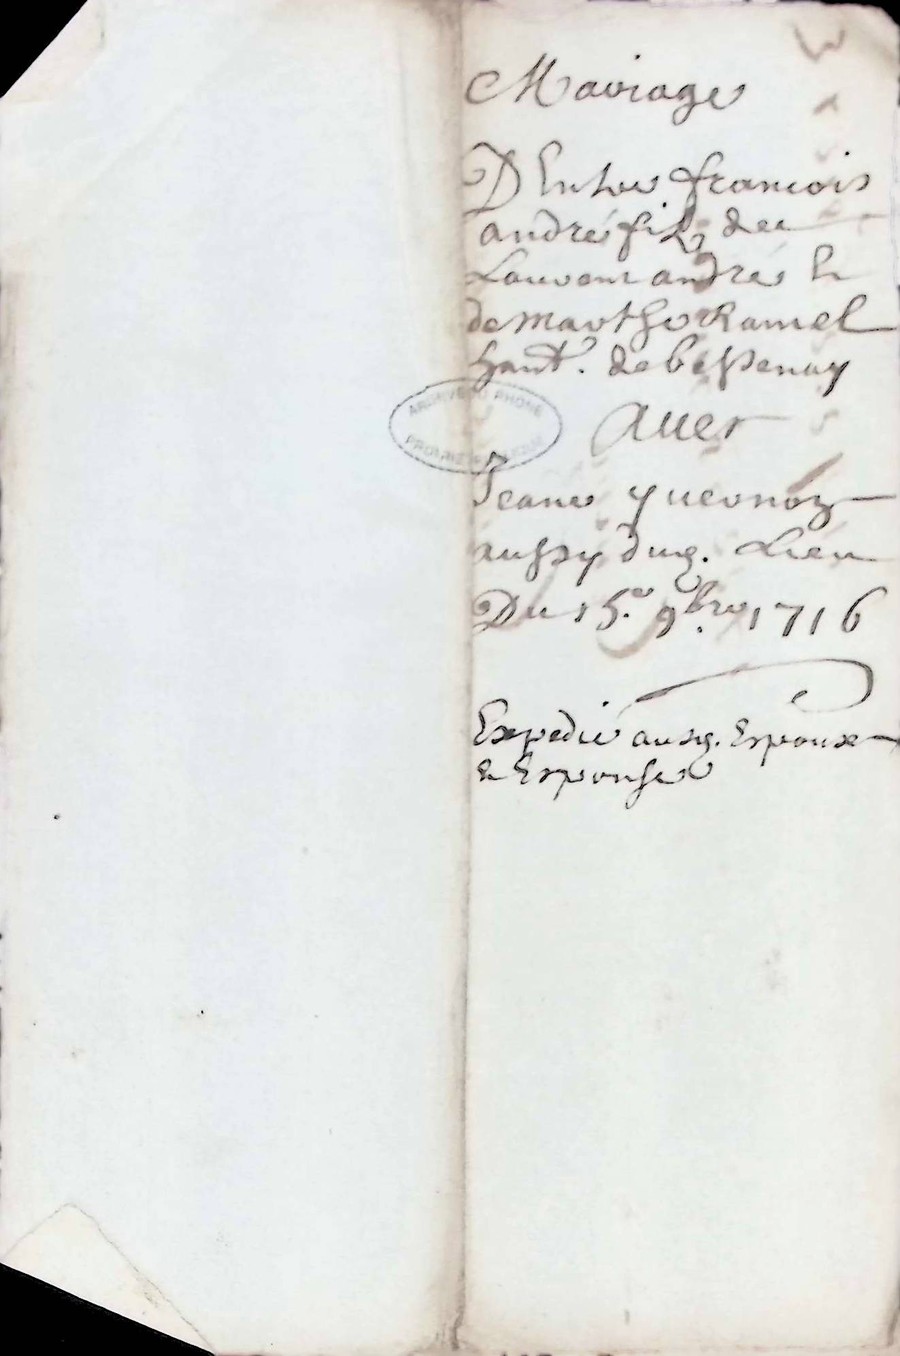 Mariage
D Entre francois
andré filz de
Laurent andré &
de marthe Ramel
hant. de bessenay
Auec
Jeane
aussy dud. Lieu
Du 15.e 9bre 1716
Expedié ausd. Espoux
& Espouse
ARCHIVES DU RHONE
PROPRIETE PUBLIQUE